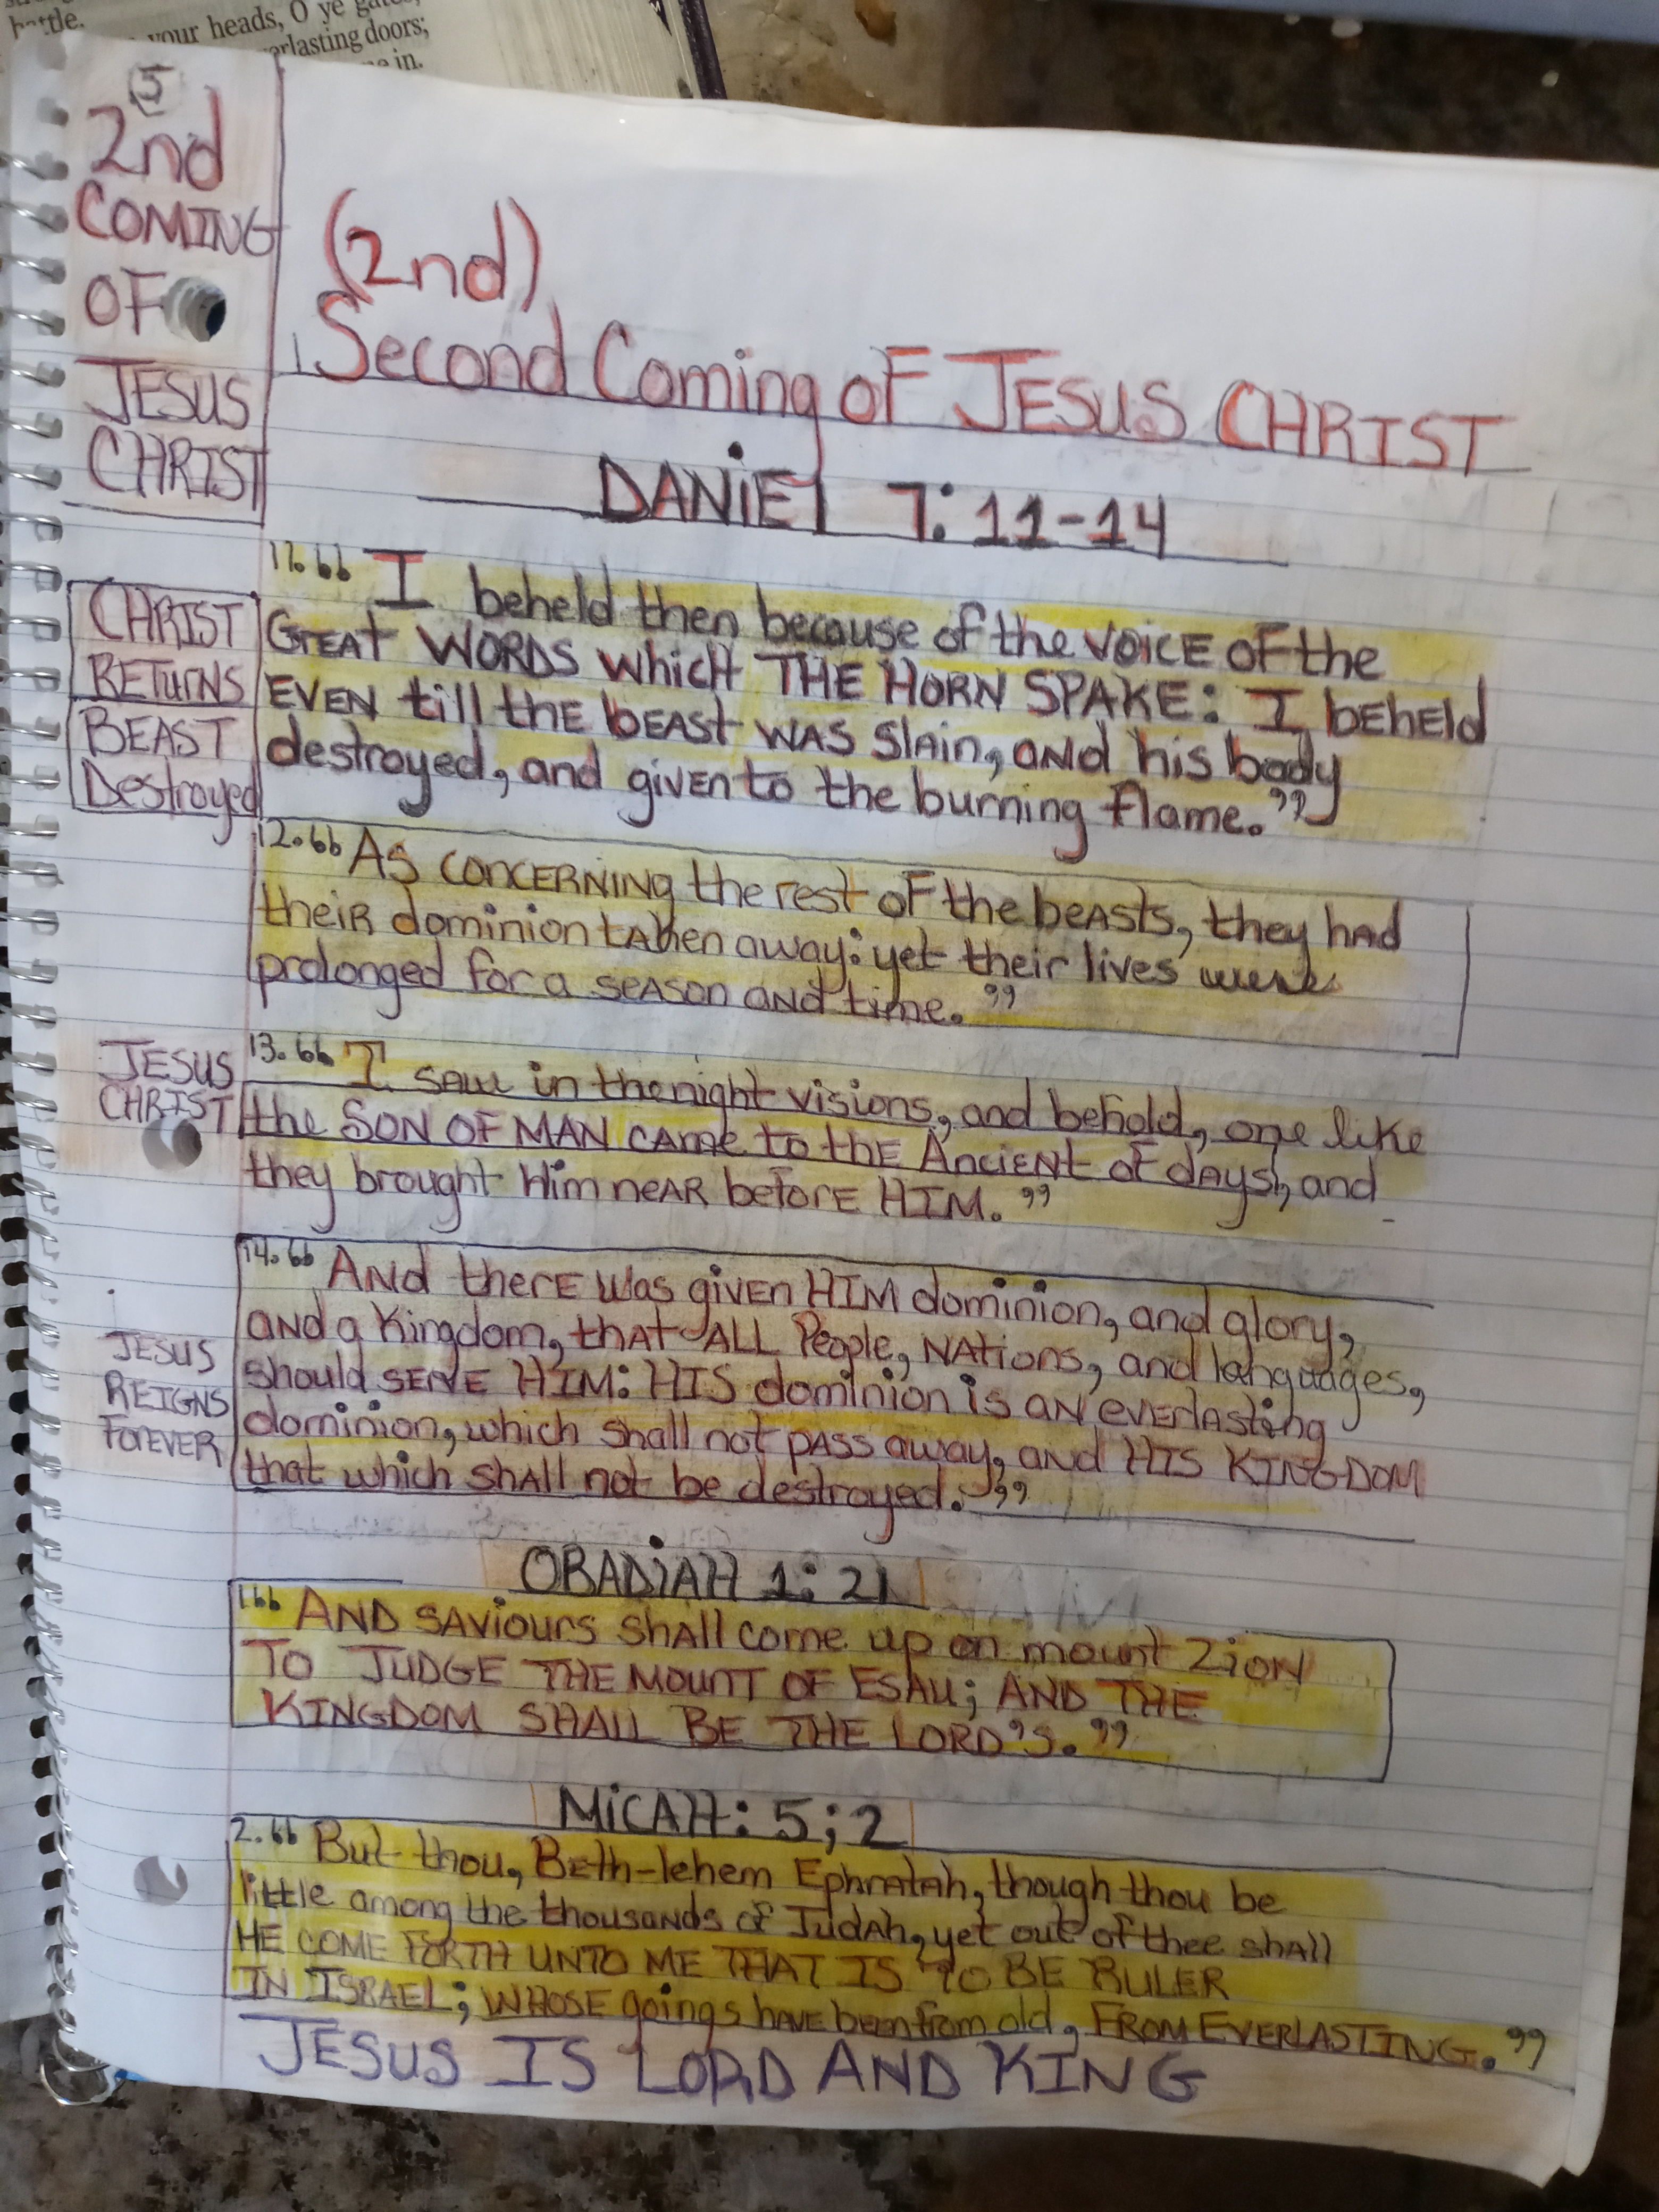 battle.
your heads, O ye gates,
erlasting doors;
in.
5
2nd
COMING
OF
JESUS
CHRIST
(2nd)
Second Coming OF JESUS CHRIST
DANiEl 7: 11-14
CHRIST
RETURNS
BEAST
Destroyed
11. “ I beheld then because of the VOICE OF the
GREAT WORDS which THE HORN SPAKE: I bEHEld
EVEN till thE bEAST WAS SlAin, aNd his body
destroyed, and givEN to the burning flame.”
12. “ AS CONCERNING the rest OF the beASts, they hAD
theiR dominion tAken away: yet their lives were
prolonged for a SEASON AND time.”
JESUS
CHRIST
13. “ I SAW in the night visions, and behold, one like
the SON OF MAN CAME to thE ANciENt of dAYS, and
they brought Him neAR beforE HIM.”
JESUS
REIGNS
FOREVER
14. “ ANd therE Was givEN HIM dominion, and glory,
aNd a Kingdom, thAT ALL People, NAtions, and languages,
should SERVE HIM: HIS dominion is aN EVERlASting
dominion, which shall not pASS away, aNd HIS KINGDOM
that which ShAll not be destroyed.”
OBADiAH 1: 21
1. “ AND SAViours ShAll come up on mount ZiON
TO JUDGE THE MOUNT OF ESAU; AND THE
KINGDOM SHALL BE THE LORD'S.”
MiCAH: 5; 2
2. “ But thou, BEth-lehem EphratAh, though thou be
little among the thousaNds of JudAh, yet out of thee shAll
HE COME FORTH UNTO ME THAT IS TO BE RULER
IN ISRAEL; WHOSE goings hAVE been from old, FROM EVERLASTING.”
JESUS IS LORD AND KING